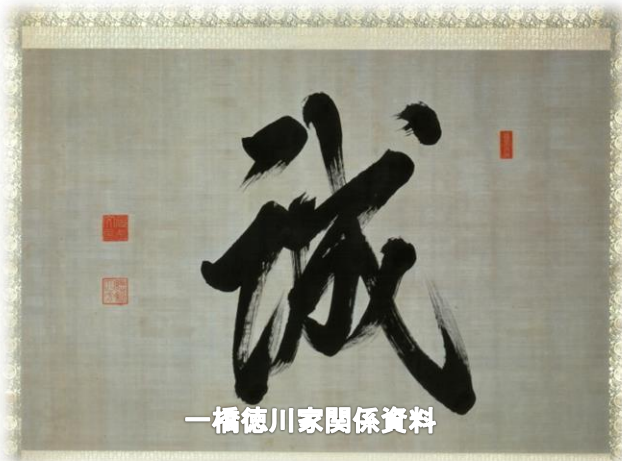 誠
一橋徳川家関係資料